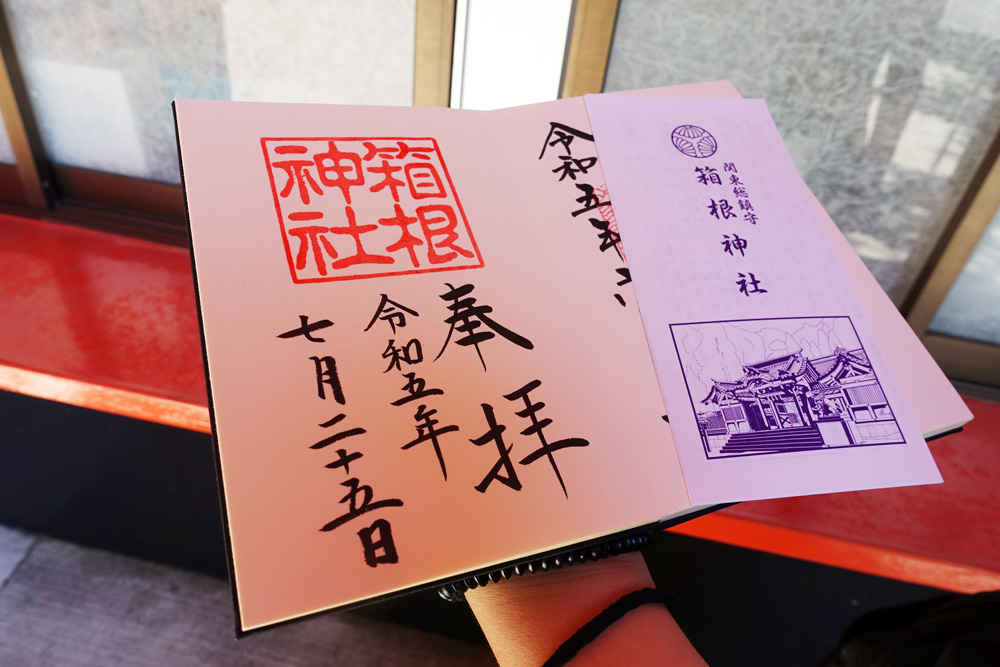 関東総鎮守
箱根神社
令和五年
箱根
神社
奉拝
令和五年
七月二十五日